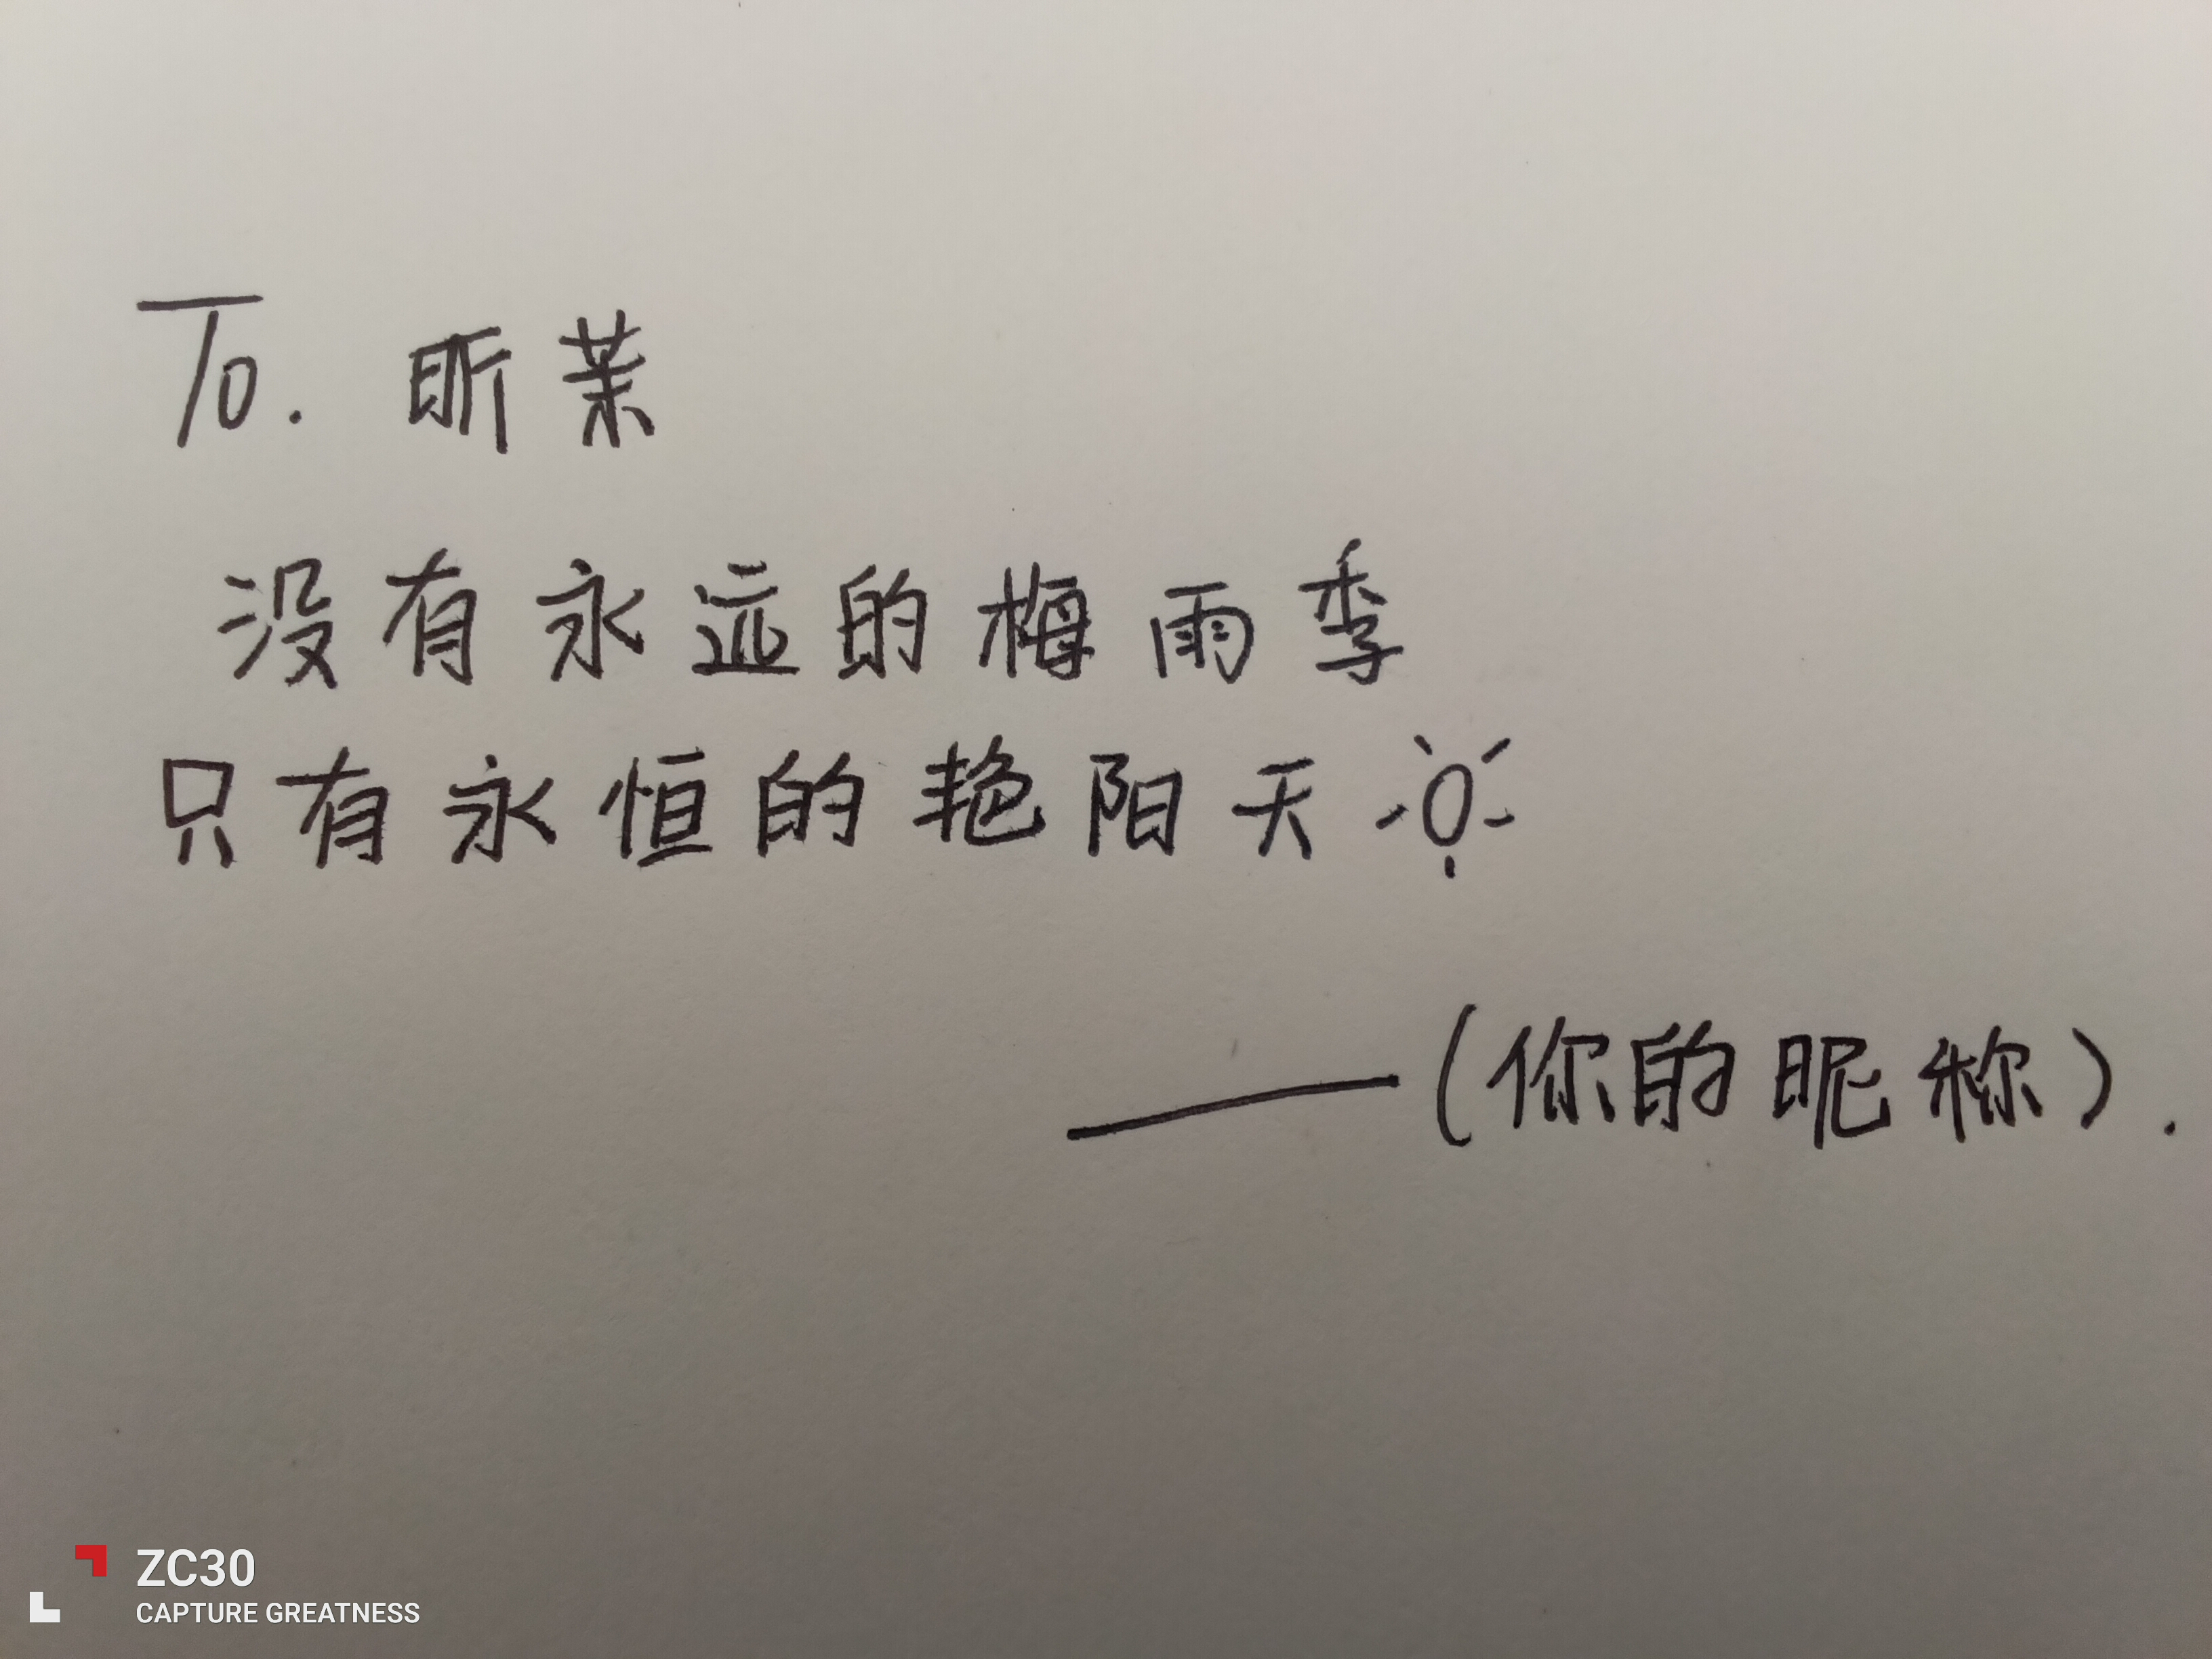 To. 昕茉
没有永远的梅雨季
只有永恒的艳阳天
——(你的昵称).
ZC30
CAPTURE GREATNESS